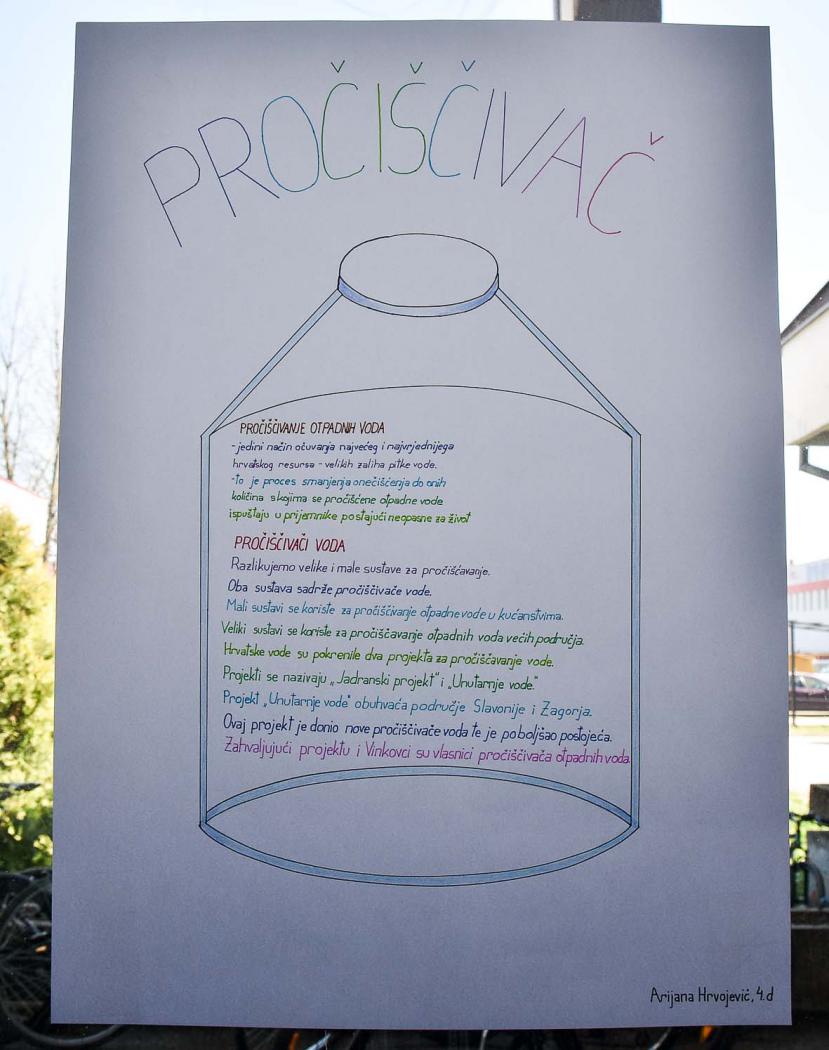 PROČIŠČIVAČ
PROČIŠČIVANJE OTPADNIH VODA
-jedini način očuvanja najvećeg i najvrjednijega
hrvatskog resursa - velikih zaliha pitke vode.
-to je proces smanjenja onečišćenja do onih
količina s kojima se pročišćene otpadne vode
ispuštaju u prijemnike postajući neopasne za život
PROČIŠČIVAČI VODA
Razlikujemo velike i male sustave za pročišćavanje.
Oba sustava sadrže pročiščivače vode.
Mali sustavi se koriste za pročiščivanje otpadne vode u kućanstvima.
Veliki sustavi se koriste za pročiščavanje otpadnih voda većih područja.
Hrvatske vode su pokrenile dva projekta za pročiščavanje vode.
Projekti se nazivaju „Jadranski projekt" i „Unutarnje vode."
Projekt „Unutarnje vode" obuhvaća područje Slavonije i Zagorja.
Ovaj projekt je donio nove pročiščivače voda te je poboljšao postojeća.
Zahvaljujući projektu i Vinkovci su vlasnici pročiščivača otpadnih voda.
Arijana Hrvojević, 4.d